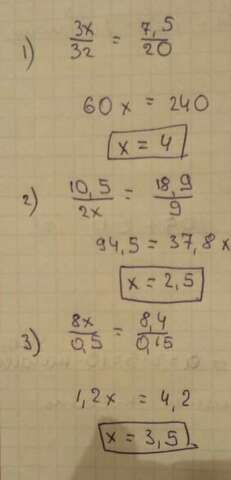 1) 3x/32 = 7,5/20
60x = 240
x = 4
2) 10,5/2x = 18,9/9
94,5 = 37,8x
x = 2,5
3) 8x/0,5 = 8,4/0,15
1,2x = 4,2
x = 3,5